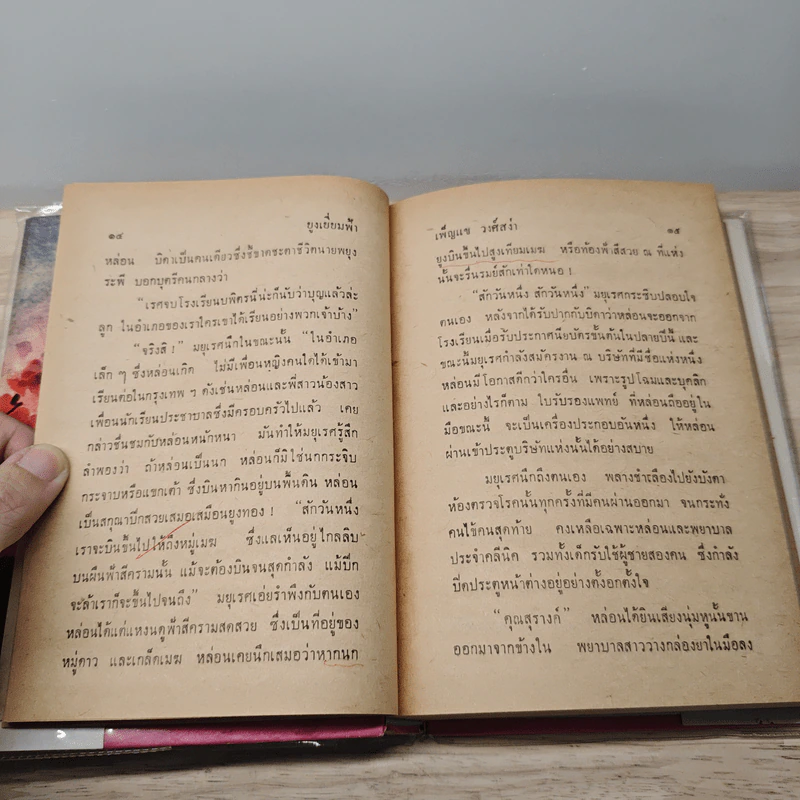 ๑๔ ยูงเยี่ยมฟ้า
หล่อน บิดาเป็นคนเดียวซึ่งชี้ขาดชะตาชีวิตนายพยุง
ระพี บอกบุตรีคนกลางว่า
“เรศจบโรงเรียนบพิตรนี่น่ะก็นับว่าบุญแล้วล่ะ
ลูก ในอำเภอของเราใครเขาได้เรียนอย่างพวกเจ้าบ้าง”
“จริงสิ !” มยุเรศนึกในขณะนั้น “ในอำเภอ
เล็ก ๆ ซึ่งหล่อนเกิด ไม่มีเพื่อนหญิงคนใดได้เข้ามา
เรียนต่อในกรุงเทพ ฯ ดังเช่นหล่อนและพี่สาวน้องสาว
เพื่อนนักเรียนประชาบาลซึ่งมีครอบครัวไปแล้ว เคย
กล่าวชื่นชมกับหล่อนหนักหนา มันทำให้มยุเรศรู้สึก
ลำพองว่า ถ้าหล่อนเป็นนก หล่อนก็มิใช่นกกระจิบ
กระจาบหรือแขกเต้า ซึ่งบินหากินอยู่บนพื้นดิน หล่อน
เป็นสกุณาปีกสวยเสมอเสมือนยูงทอง ! “สักวันหนึ่ง
เราจะบินขึ้นไปให้ถึงหมู่เมฆ ซึ่งแลเห็นอยู่ไกลลิบ
บนผืนฟ้าสีครามนั้น แม้จะต้องบินจนสุดกำลัง แม้ปีก
จะล้าเราก็จะขึ้นไปจนถึง” มยุเรศเอ่ยรำพึงกับตนเอง
หล่อนได้แต่แหงนดูฟ้าสีครามสดสวย ซึ่งเป็นที่อยู่ของ
หมู่ดาว และเกล็ดเมฆ หล่อนเคยนึกเสมอว่าหากนก
เพ็ญแข วงศ์สง่า ๑๕
ยูงบินขึ้นไปสูงเทียมเมฆ หรือท้องฟ้าสีสวย ณ ที่แห่ง
นั้นจะรื่นรมย์สักเท่าใดหนอ !
“สักวันหนึ่ง สักวันหนึ่ง” มยุเรศกระซิบปลอบใจ
ตนเอง หลังจากได้รับปากกับบิดาว่าหล่อนจะออกจาก
โรงเรียนเมื่อรับประกาศนียบัตรขั้นต้นในปลายปีนี้ และ
ขณะนี้มยุเรศกำลังสมัครงาน ณ บริษัทที่มีชื่อแห่งหนึ่ง
หล่อนมีโอกาสดีกว่าใครอื่น เพราะรูปโฉมและบุคลิก
และอย่างไรก็ตาม ใบรับรองแพทย์ ที่หล่อนถืออยู่ใน
มือขณะนี้ จะเป็นเครื่องประกอบอันหนึ่ง ให้หล่อน
ผ่านเข้าประตูบริษัทแห่งนั้นได้อย่างสบาย
มยุเรศนึกถึงตนเอง พลางชำเลืองไปยังบังตา
ห้องตรวจโรคนั้นทุกครั้งที่มีคนผ่านออกมา จนกระทั่ง
คนไข้คนสุดท้าย คงเหลือเฉพาะหล่อนและพยาบาล
ประจำคลีนิค รวมทั้งเด็กรับใช้ผู้ชายสองคน ซึ่งกำลัง
ปิดประตูหน้าต่างอยู่อย่างตั้งอกตั้งใจ
“คุณสุรางค์” หล่อนได้ยินเสียงนุ่มหูนั้นขาน
ออกมาจากข้างใน พยาบาลสาววางกล่องยาในมือลง